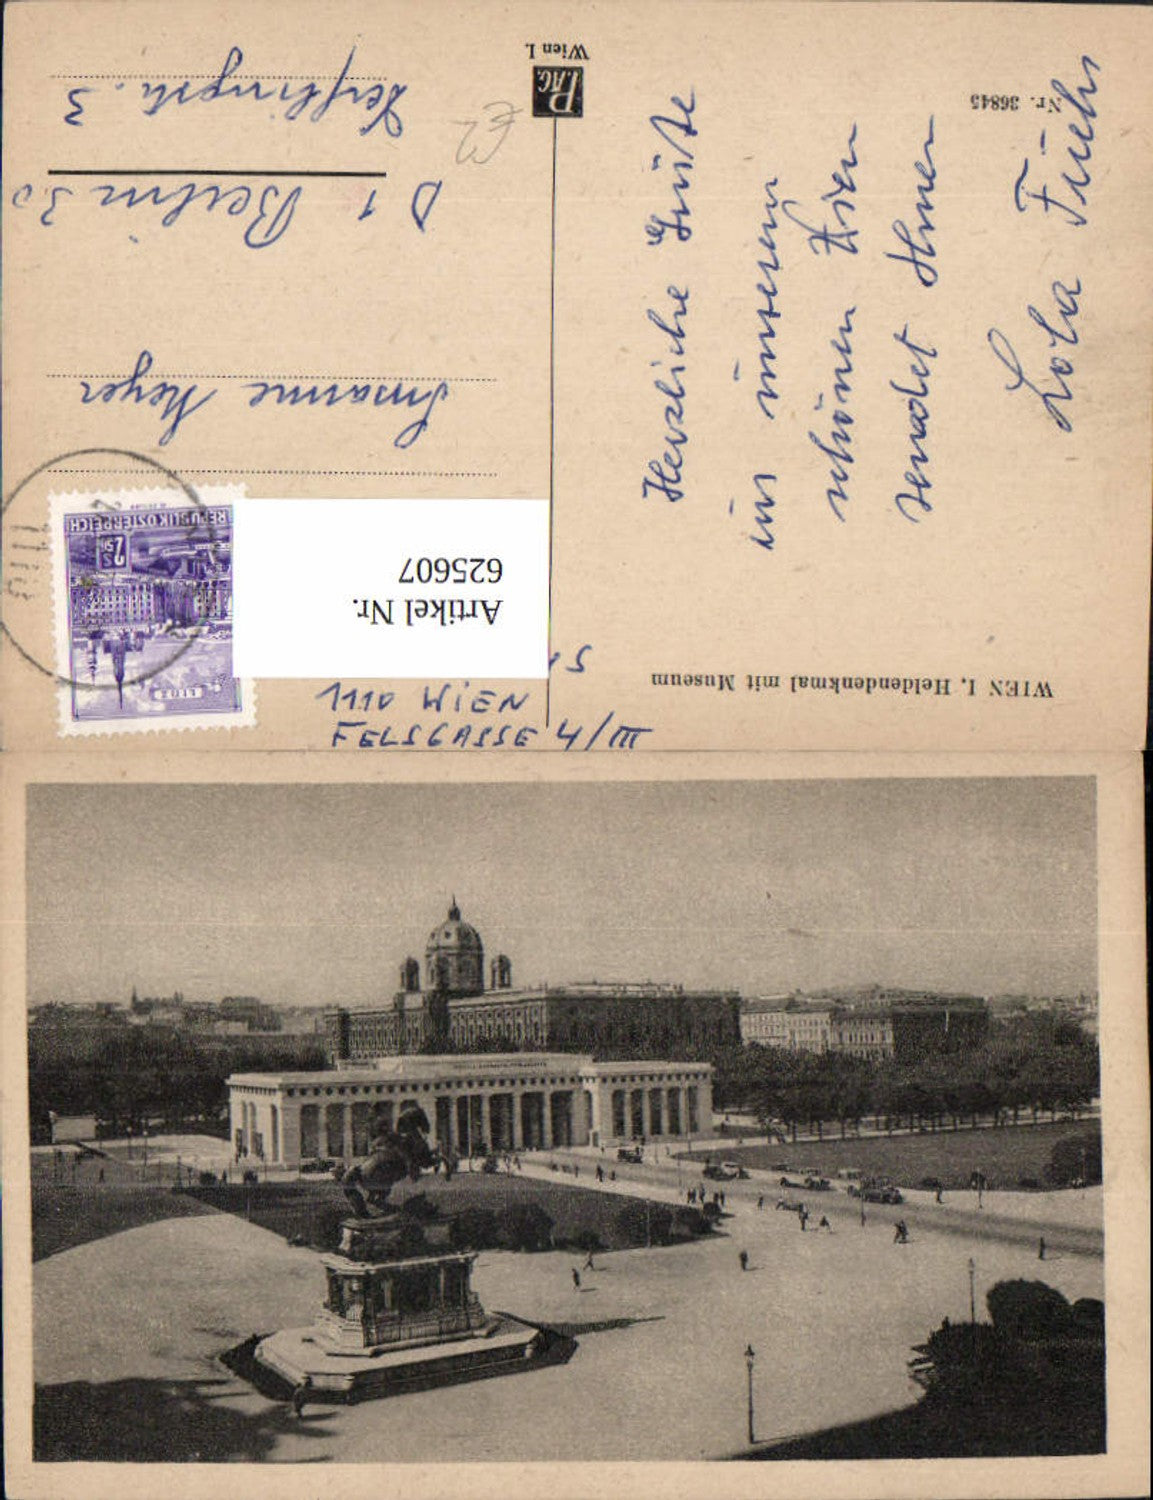 WIEN I. Heldendenkmal mit Museum
FELSGASSE 4/III
1110 WIEN
Artikel Nr.
625607
REPUBLIK ÖSTERREICH
LINZ
Herzliche Grüße
aus unserem
schönen Wien
sendet Ihnen
Lola Fuchs
Nr. 36845
PAG
Wien I.
Susanne Meyer
D 1 Berlin 30
3